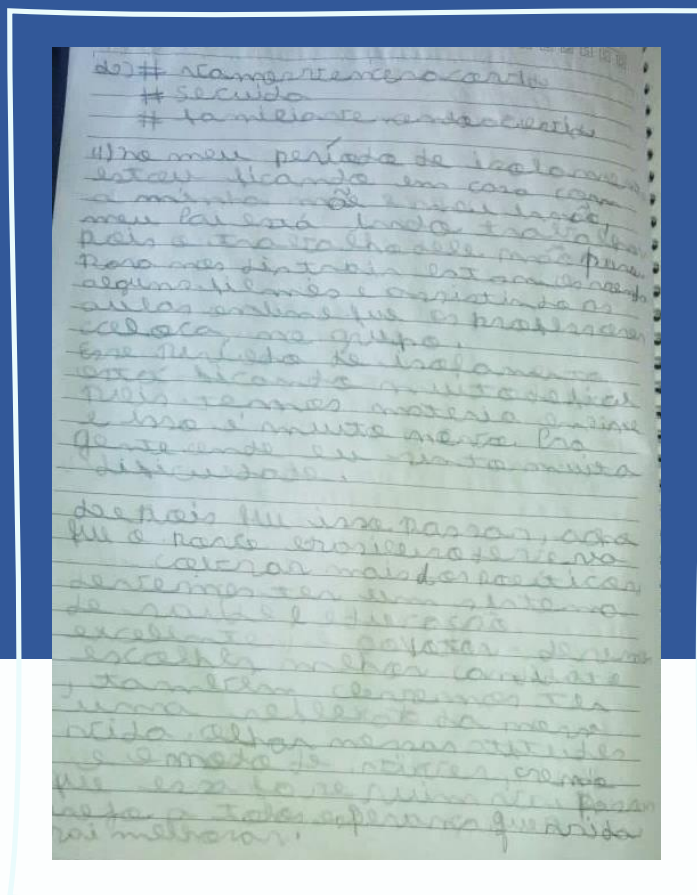 do) # vamos vencer o covid
# se cuida
# familia
11) no meu período de isolamen
estou ficando em casa com
a minha mãe e meu irmão,
meu Pai está indo trabalhar
pois o trabalho dele não
Para nos distrair estamos vendo
alguns filmes e assistindo as
aulas online que os professores
coloca no grupo.
Esse período de isolamento
está ficando muito dificil
Pois temos materia online
e isso é muito Pra
gente onde eu sinto muita
dificuldade.
depois que isso passar, acho
que o brasileiro deveria
cobrar mais dos politicos
devemos ter um sistema
de saúde e educação
excelente devemos
escolher melhor candidato
, também devemos ter
uma da nossa
vida, olhar nossas atitudes
e o modo de
que essa fase ruim vai passar
a todos esperança que a vida
vai melhorar.